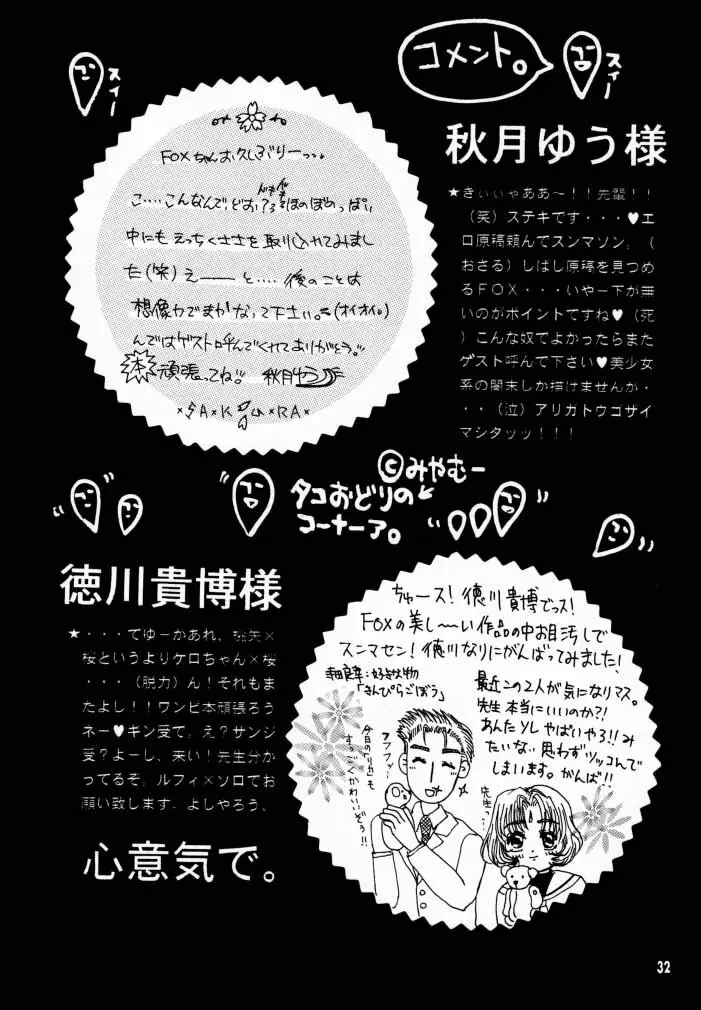 コメント。
スィー
スィー
秋月ゆう様
★きぃぃゃああ～！！先輩！！
（笑）ステキです・・・♥エ
ロ原稿頼んでスンマソン。（
おさる）しばし原稿を見つめ
るＦＯＸ・・・いやー下が無
いのがポイントですね♥（死
）こんな奴でよかったらまた
ゲスト呼んで下さい♥美少女
系の闇末しか描けませんが・
・・（泣）アリガトウゴザイ
マシタッッ！！！
FOXちゃんお久しぶりーっ。
こ…こんなんで、どお？ ほのぼの
中にもえっちくささを取り入れてみまし
た（笑）えーーと…、後のことは
想像力でまかなって下さい。（オイオイ。）
んではゲスト呼んでくれてありがとう。
本頑張ってね。 秋月ゆう
×SA×KU×RA×
©みやむー
タコおどりの
コーナーア。
徳川貴博様
★・・・てゆーかあれ、桃矢×
桜というよりケロちゃん×桜
・・・（脱力）ん！それもま
たよし！！ワンピ本頑張ろう
ネー♥キン受で。え？サンジ
受？よーし、来い！先生分か
ってるぞ。ルフィ×ゾロでお
願い致します。よしやろう、
心意気で。
ちゅース！徳川貴博でっス！
FOXの美し〜い作品の中お目汚しで
スンマセン！徳川なりにがんばってみました！
寺田良幸：好きな物
「きんぴらごぼう」
最近この2人が気になりマス。
先生本当にいいのか？！
あんたソレやばいやろ！！み
たいな 思わずツッコんで
しまいます。がんば！！
フフフッ
今日の「リカ」も
すっごくかわいいどぅ！！
先生っ…
32